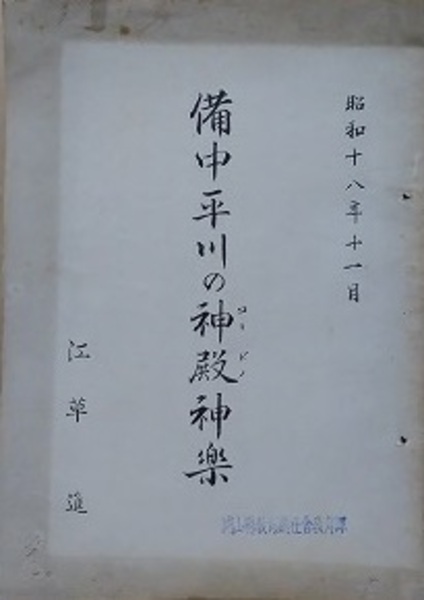 昭和十八年十一月
備中平川の神殿神楽
江草進